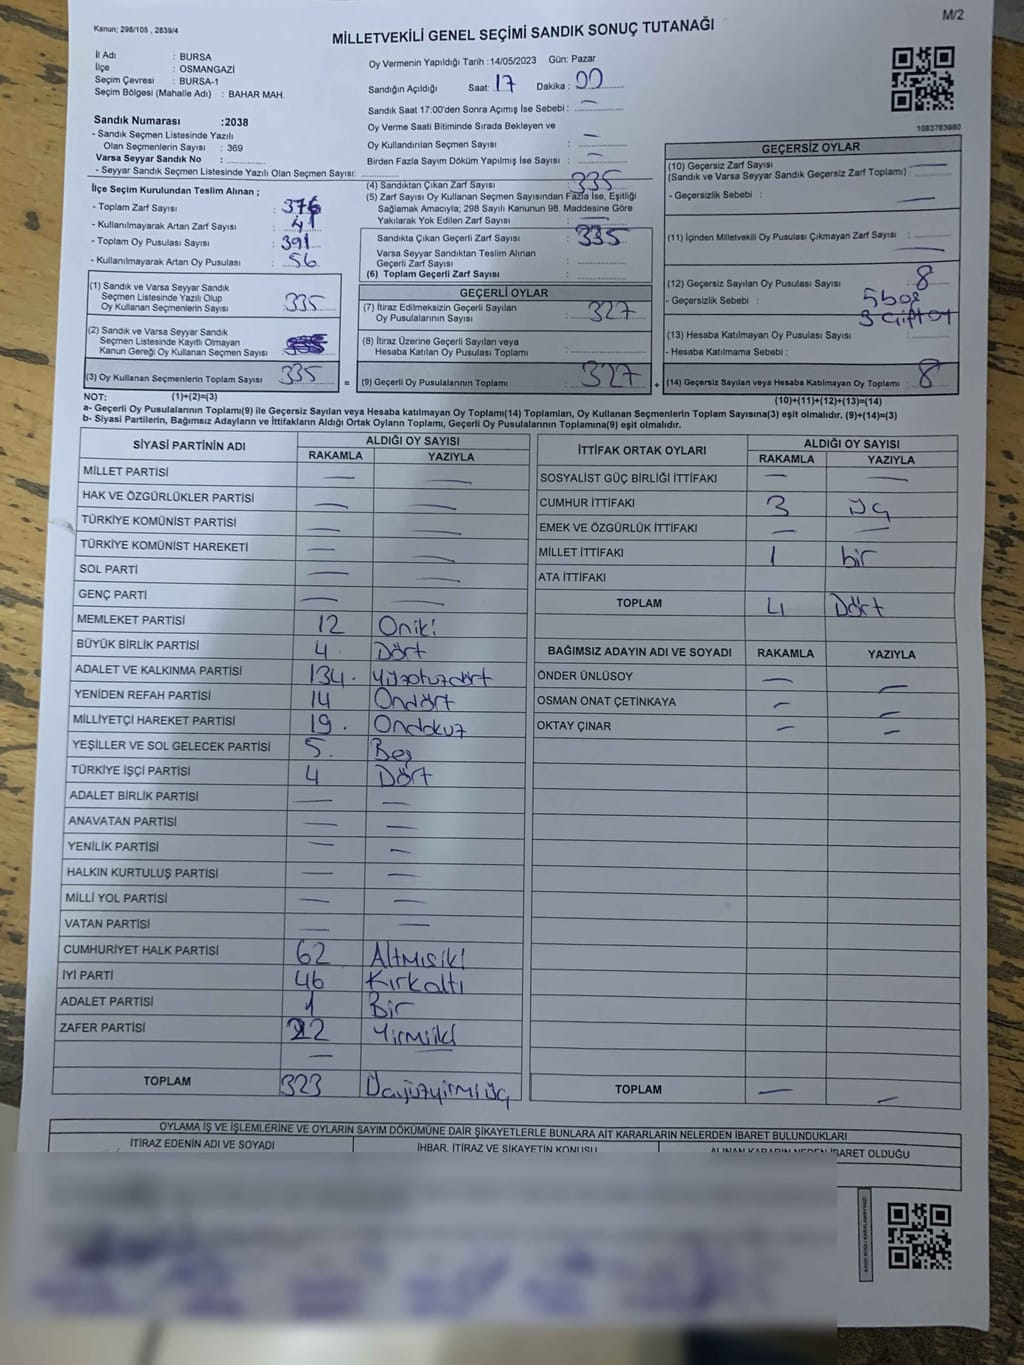 M/2
Kanun; 298/105 , 2839/4
MİLLETVEKİLİ GENEL SEÇİMİ SANDIK SONUÇ TUTANAĞI
İl Adı : BURSA
İlçe : OSMANGAZİ
Seçim Çevresi : BURSA-1
Seçim Bölgesi (Mahalle Adı) : BAHAR MAH.
Sandık Numarası :2038
- Sandık Seçmen Listesinde Yazılı
Olan Seçmenlerin Sayısı : 369
Varsa Seyyar Sandık No :
- Seyyar Sandık Seçmen Listesinde Yazılı Olan Seçmen Sayısı:
Oy Vermenin Yapıldığı Tarih :14/05/2023 Gün: Pazar
Sandığın Açıldığı Saat: 17 Dakika : 00
Sandık Saat 17:00'den Sonra Açımış İse Sebebi : —
Oy Verme Saati Bitiminde Sırada Bekleyen ve
Oy Kullandırılan Seçmen Sayısı : —
Birden Fazla Sayım Döküm Yapılmış İse Sayısı : —
1083763980
İlçe Seçim Kurulundan Teslim Alınan ;
- Toplam Zarf Sayısı : 376
- Kullanılmayarak Artan Zarf Sayısı : 41
- Toplam Oy Pusulası Sayısı : 391
- Kullanılmayarak Artan Oy Pusulası : 56
(1) Sandık ve Varsa Seyyar Sandık
Seçmen Listesinde Yazılı Olup
Oy Kullanan Seçmenlerin Sayısı : 335
(2) Sandık ve Varsa Seyyar Sandık
Seçmen Listesinde Kayıtlı Olmayan
Kanun Gereği Oy Kullanan Seçmen Sayısı :
(3) Oy Kullanan Seçmenlerin Toplam Sayısı : 335 =
(4) Sandıktan Çıkan Zarf Sayısı : 335
(5) Zarf Sayısı Oy Kullanan Seçmen Sayısından Fazla İse, Eşitliği
Sağlamak Amacıyla; 298 Sayılı Kanunun 98. Maddesine Göre
Yakılarak Yok Edilen Zarf Sayısı : —
Sandıkta Çıkan Geçerli Zarf Sayısı : 335
Varsa Seyyar Sandıktan Teslim Alınan
Geçerli Zarf Sayısı :
(6) Toplam Geçerli Zarf Sayısı :
GEÇERLİ OYLAR
(7) İtiraz Edilmeksizin Geçerli Sayılan
Oy Pusulalarının Sayısı : 327
(8) İtiraz Üzerine Geçerli Sayılan veya
Hesaba Katılan Oy Pusulası Toplamı :
(9) Geçerli Oy Pusulalarının Toplamı : 327 +
GEÇERSİZ OYLAR
(10) Geçersiz Zarf Sayısı
(Sandık ve Varsa Seyyar Sandık Geçersiz Zarf Toplamı) : —
- Geçersizlik Sebebi : —
(11) İçinden Milletvekili Oy Pusulası Çıkmayan Zarf Sayısı : —
(12) Geçersiz Sayılan Oy Pusulası Sayısı : 8
- Geçersizlik Sebebi : 5 boş
3 Çift oy
(13) Hesaba Katılmayan Oy Pusulası Sayısı :
- Hesaba Katılmama Sebebi :
(14) Geçersiz Sayılan veya Hesaba Katılmayan Oy Toplamı : 8
NOT: (1)+(2)=(3)
(10)+(11)+(12)+(13)=(14)
a- Geçerli Oy Pusulalarının Toplamı(9) ile Geçersiz Sayılan veya Hesaba katılmayan Oy Toplamı(14) Toplamları, Oy Kullanan Seçmenlerin Toplam Sayısına(3) eşit olmalıdır. (9)+(14)=(3)
b- Siyasi Partilerin, Bağımsız Adayların ve İttifakların Aldığı Ortak Oyların Toplamı, Geçerli Oy Pusulalarının Toplamına(9) eşit olmalıdır.
SİYASİ PARTİNİN ADI ALDIĞI OY SAYISI
RAKAMLA YAZIYLA
MİLLET PARTİSİ — —
HAK VE ÖZGÜRLÜKLER PARTİSİ — —
TÜRKİYE KOMÜNİST PARTİSİ — —
TÜRKİYE KOMÜNİST HAREKETİ — —
SOL PARTİ — —
GENÇ PARTİ — —
MEMLEKET PARTİSİ 12 Oniki
BÜYÜK BİRLİK PARTİSİ 4 Dört
ADALET VE KALKINMA PARTİSİ 134 Yüzotuzdört
YENİDEN REFAH PARTİSİ 14 Ondört
MİLLİYETÇİ HAREKET PARTİSİ 19 Ondokuz
YEŞİLLER VE SOL GELECEK PARTİSİ 5 Beş
TÜRKİYE İŞÇİ PARTİSİ 4 Dört
ADALET BİRLİK PARTİSİ — —
ANAVATAN PARTİSİ — —
YENİLİK PARTİSİ — —
HALKIN KURTULUŞ PARTİSİ — —
MİLLİ YOL PARTİSİ — —
VATAN PARTİSİ — —
CUMHURİYET HALK PARTİSİ 62 Altmışiki
İYİ PARTİ 46 Kırkaltı
ADALET PARTİSİ 1 Bir
ZAFER PARTİSİ 22 Yirmiiki
—
TOPLAM 323 Üçyüzyirmiüç
İTTİFAK ORTAK OYLARI ALDIĞI OY SAYISI
RAKAMLA YAZIYLA
SOSYALİST GÜÇ BİRLİĞİ İTTİFAKI — —
CUMHUR İTTİFAKI 3 Üç
EMEK VE ÖZGÜRLÜK İTTİFAKI — —
MİLLET İTTİFAKI 1 bir
ATA İTTİFAKI
TOPLAM 4 Dört
BAĞIMSIZ ADAYIN ADI VE SOYADI RAKAMLA YAZIYLA
ÖNDER ÜNLÜSOY — —
OSMAN ONAT ÇETİNKAYA — —
OKTAY ÇINAR — —
TOPLAM — —
OYLAMA İŞ VE İŞLEMLERİNE VE OYLARIN SAYIM DÖKÜMÜNE DAİR ŞİKAYETLERLE BUNLARA AİT KARARLARIN NELERDEN İBARET BULUNDUKLARI
İTİRAZ EDENİN ADI VE SOYADI İHBAR, İTİRAZ VE ŞİKAYETİN KONUSU ALINAN KARARIN NEDEN İBARET OLDUĞU